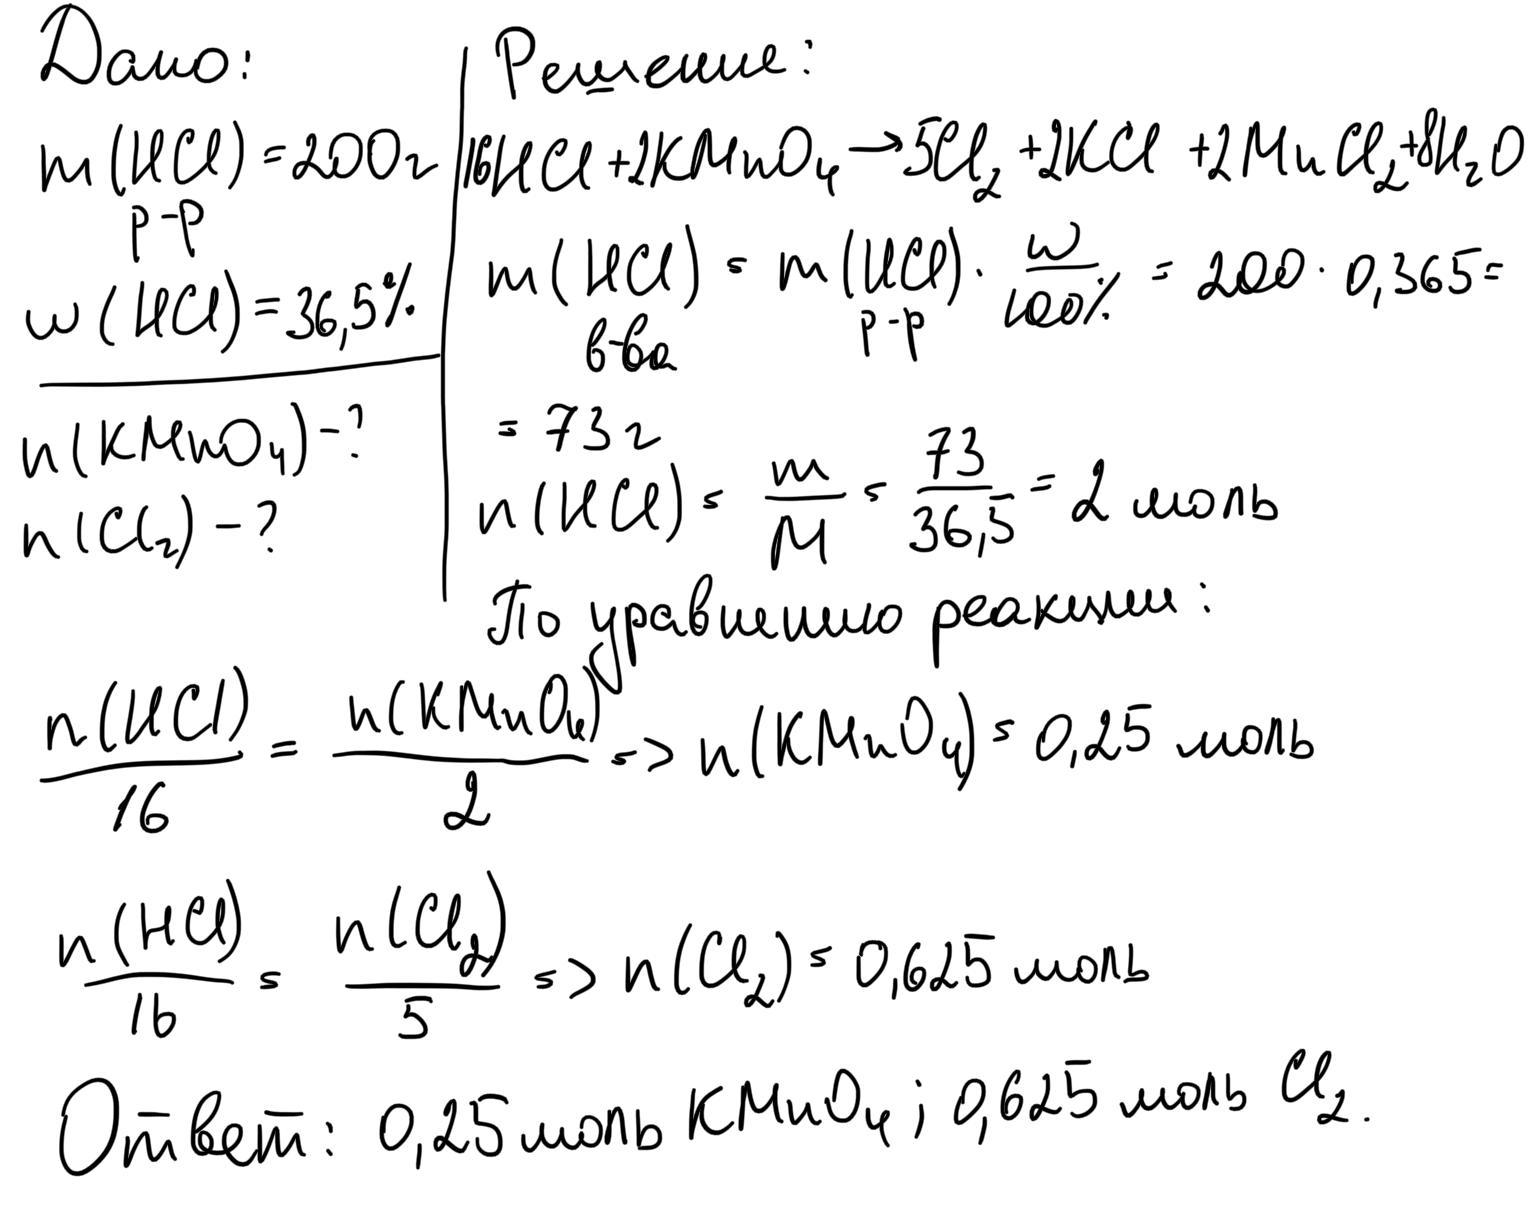 Дано:
m(HCl) = 200г
р-р
w(HCl) = 36,5%
n(KMnO₄) - ?
n(Cl₂) - ?
Решение:
16HCl + 2KMnO₄ → 5Cl₂ + 2KCl + 2MnCl₂ + 8H₂O
m(HCl) = m(HCl) · w/100% = 200 · 0,365 =
в-ва р-р
= 73 г
n(HCl) = m/M = 73/36,5 = 2 моль
По уравнению реакции:
n(HCl)/16 = n(KMnO₄)/2 => n(KMnO₄) = 0,25 моль
n(HCl)/16 = n(Cl₂)/5 => n(Cl₂) = 0,625 моль
Ответ: 0,25 моль KMnO₄; 0,625 моль Cl₂.